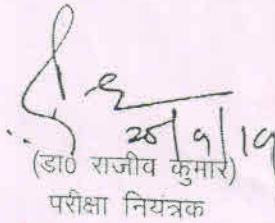 20/9/19
(डा0 राजीव कुमार)
परीक्षा नियंत्रक